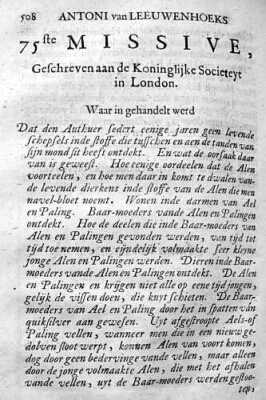 508 ANTONI van LEEUWENHOEKS
75ste MISSIVE,
Geschreven aan de Koninglijke Societeyt
in London.
Waar in gehandelt werd
Dat den Autheur sedert eenige jaren geen levende
schepsels inde stoffe die tusschen en aen de tanden van
sijn mond sit heeft ontdekt. En wat de oorsaak daar
van is geweest. Hoe eenige oordeelen dat de Alen
voorteelen, en hoe men daar in komt te dwalen van-
de levende dierkens inde stoffe van de Alen die men
navel-bloet noemt. Wonen inde darmen van Ael
en Paling. Baar-moeders vande Alen en Palingen
ontdekt. Hoe de deelen die inde Baar-moeders van
Alen en Palingen gevonden werden, van tijd tot
tijd toe nemen, en eijndelijk volmaakte seer kleyne
jonge Alen en Palingen werden. Dieren inde Baar-
moeders vande Alen en Palingen ontdekt. De Alen
en Palingen en krijgen niet alle op eene tijd jongen,
gelijk de vissen doen, die kuyt schieten. De Baar-
moeders van Ael en Paling door het in spatten van
quiksilver aan gewesen. Uyt afgestroopte Aels-of
Paling vellen, wanneer men die in een nieuw ge-
dolven sloot werpt, konnen Alen van voort komen,
dog door geen bedervinge vande vellen, maar alleen
door de jonge volmaakte Alen, die met het afhalen
vande vellen, uyt de Baar-moeders werden gestoo-